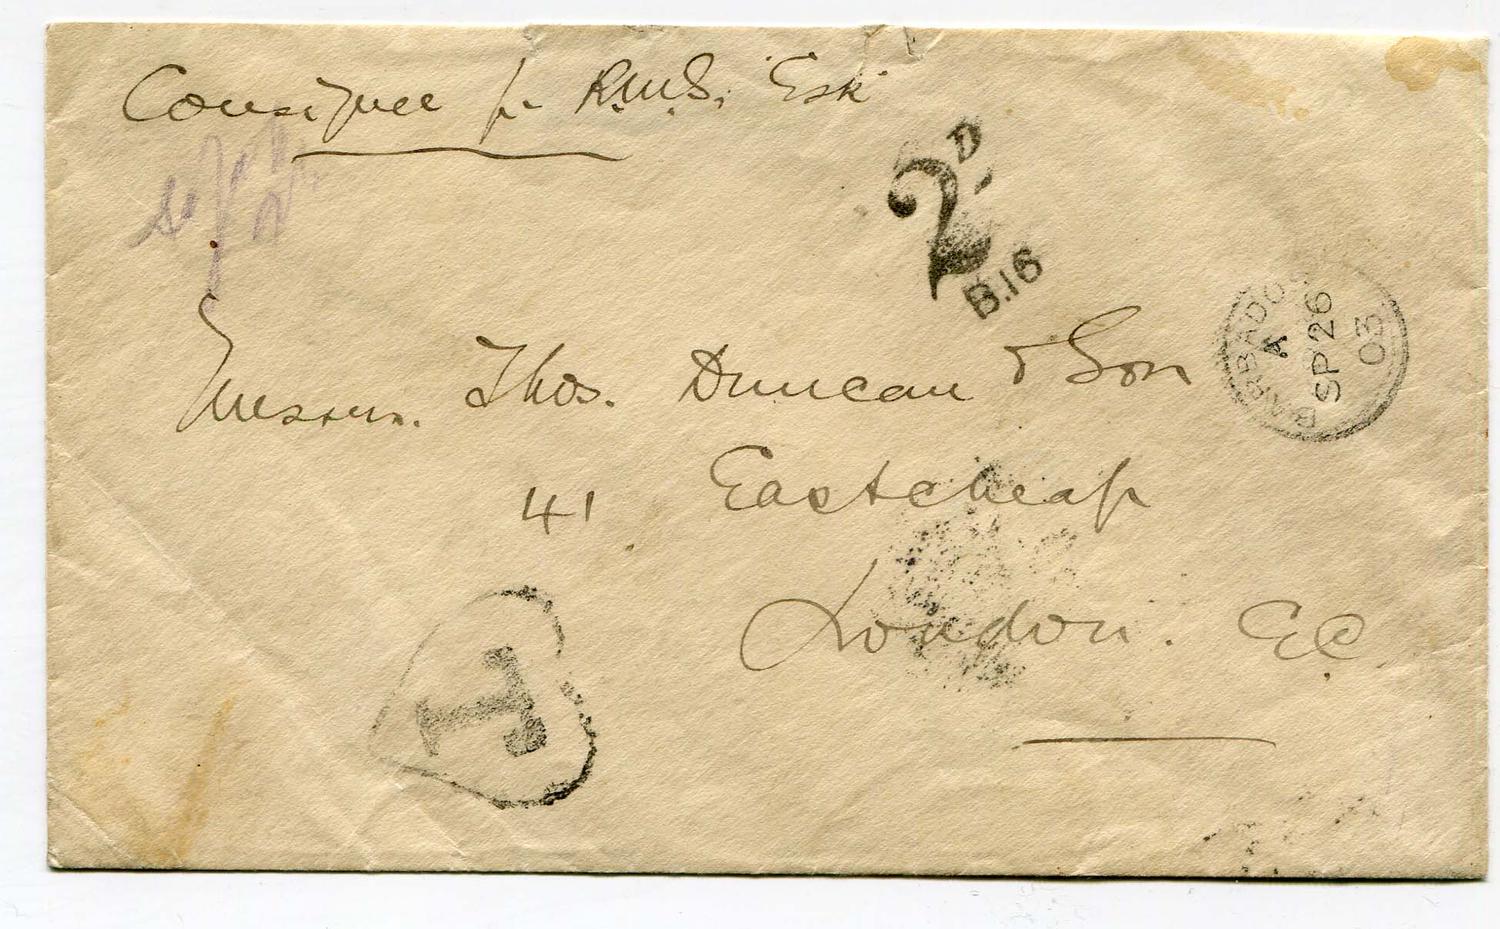 Consignee pr R.M.S. "Esk"
2D.
B.16
BARBADOS
A
SP 26
03
Messrs. Thos. Duncan & Son
41 Eastcheap
London. E.C.
T